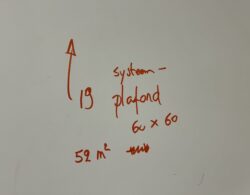 systeem-
19 plafond
60 x 60
52 m²